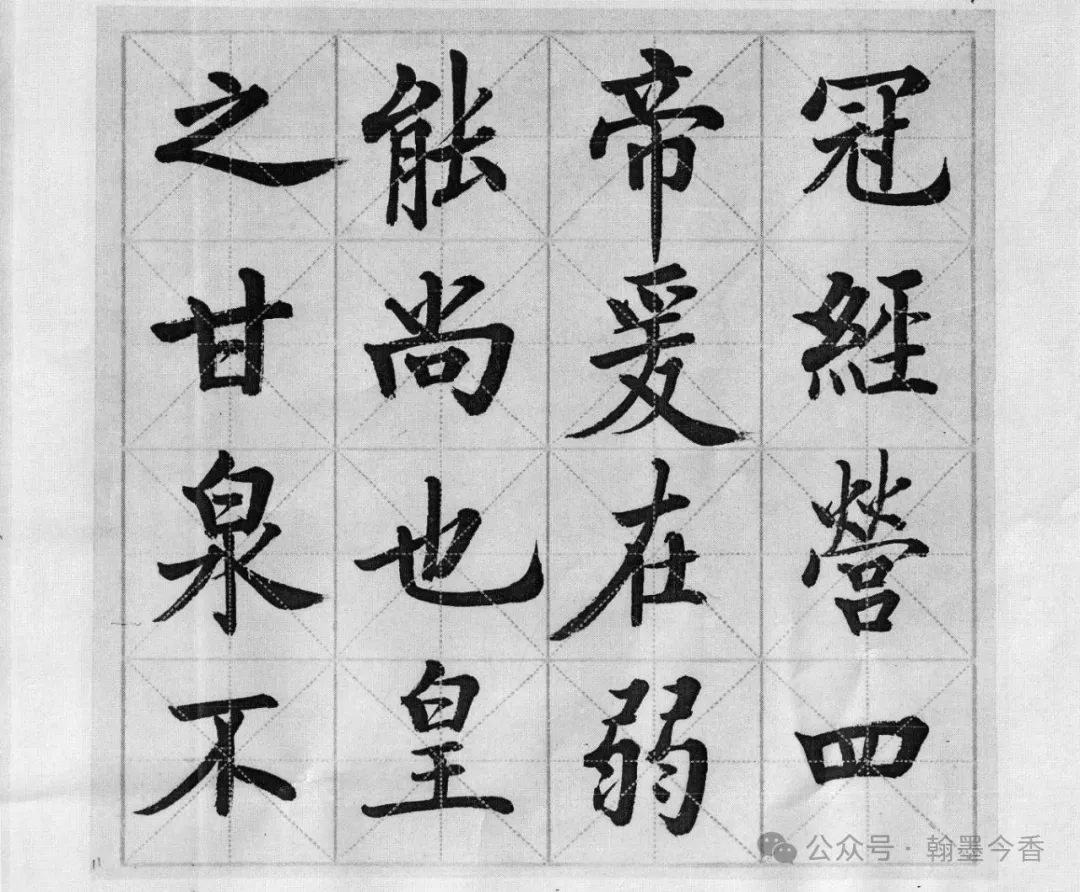 冠經營四
帝爰在弱
能尚也皇
之甘泉不
公众号·翰墨今香